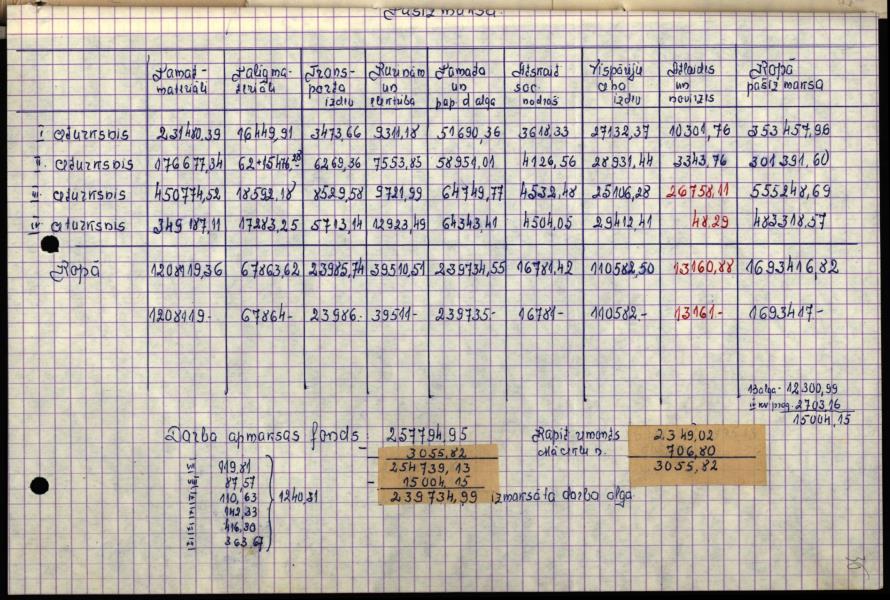 Pašizmaksa
Pamat- materiāli | Palīgma- teriāli | Trans- porta izdev | Kurinām un elektrība | Pamata un pap. d alga | Atskait soc. nodroš | Vispārēju cho izdev | Atlaides un novirzes | Kopā pašizmaksa
I ceturksnis 231480,39 16449,91 3473,66 9311,18 51690,36 3618,33 27132,37 10301,76 353457,96
II. ceturksnis 176677,34 62+15476,28 6269,36 7553,85 58951,01 4126,56 28931,44 3343,76 301391,60
III ceturksnis 450774,52 18592,18 8529,58 9721,99 64749,77 4532,48 25106,28 26758,11 555248,69
IV ceturksnis 349187,11 17283,25 5713,14 12923,49 64343,41 4504,05 29412,41 48.29 483318,57
Kopā 1208119,36 67863,62 23985,74 39510,51 239734,55 16781,42 110582,50 13160,88 1693416,82
1208119.- 67864.- 23986.- 39511.- 239735.- 16781.- 110582.- 13161.- 1693417.-
13 alga - 12300,99
IV kv prēg. 2703,16
15004,15
Darba apmaksas fonds: 257794,95
- 3055,82
254739,13
- 15004,15
239734,99 izmaksāta darba alga
Kapit remonts 2349,02
706,80
3055,82
119,81
87,57
110,63
142,33
416,30
363,67
1240,31